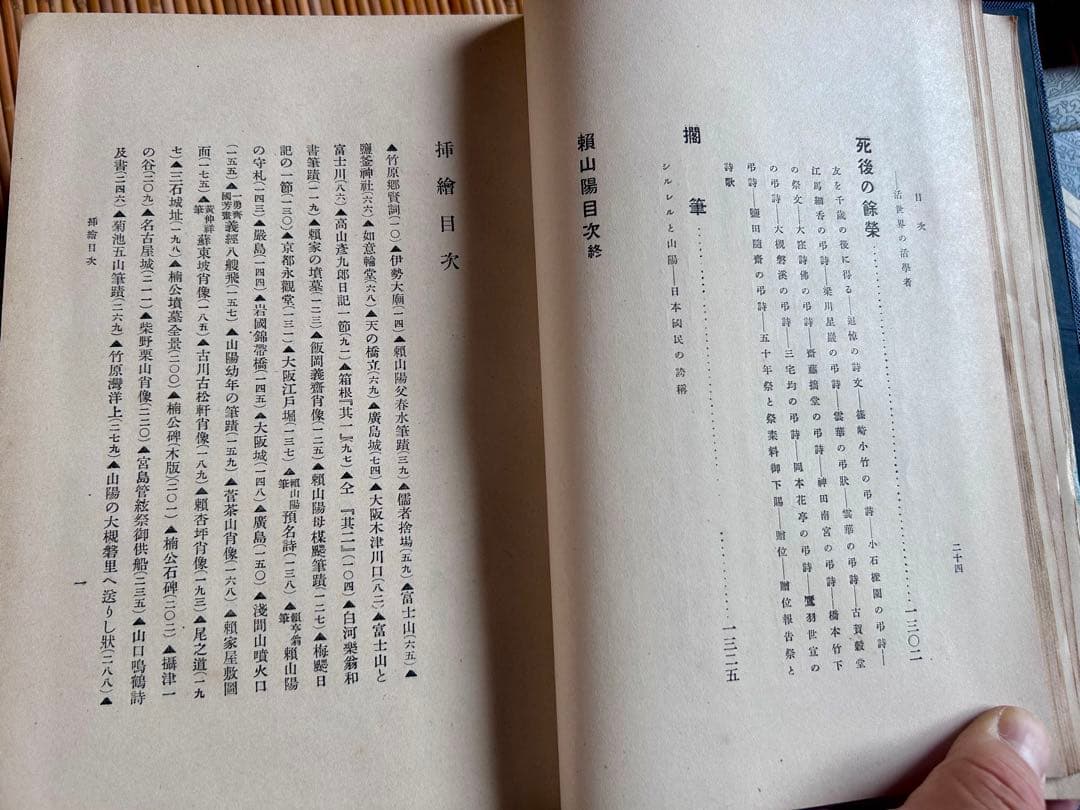 目次
二十四
活世界の活學者
死後の餘榮……………一三〇二
友を千歳の後に得る―追悼の詩文―篠崎小竹の弔詩―小石檉園の弔詩―
江馬細香の弔詩―梁川星巖の弔詩―雲華の弔狀―雲華の弔詩―古賀穀堂
の祭文―大窪詩佛の弔詩―齋藤拙堂の弔詩―神田南宮の弔詩―橋本竹下
の弔詩―大槻磐溪の弔詩―三宅均の弔詩―岡本花亭の弔詩―羽世宣の
弔詩―鹽田隨齋の弔詩―五十年祭と祭粢料御下賜―贈位―贈位報吿祭と
詩歌
擱筆……………一三二五
シルレルと山陽―日本國民の誇稱
賴山陽目次終
挿繪目次
▲竹原鄕賢詞(一〇)▲伊勢大廟(一四)▲賴山陽父春水筆蹟(三九)▲儒者捨場(五九)▲富士山(六五)▲
鹽釜神社(六六)▲如意輪堂(六八)▲天の橋立(六九)▲廣島城(七四)▲大阪木津川口(八二)▲富士山と
富士川(八六)▲高山彥九郞日記一節(九二)▲箱根『其一』(九七)▲仝『其二』(一〇四)▲白河樂翁和
書筆蹟(一一九)▲賴家の墳墓(一二三)▲飯岡義齋肖像(一二五)▲賴山陽母楳颸筆蹟(一二七)▲梅颸日
記の一節(一三〇)▲京都永觀堂(一三一)▲大阪江戶堀(一三七)▲賴山陽筆預名詩(一三八)▲賴享翁筆賴山陽
の守札(一四三)▲嚴島(一四四)▲岩國錦帶橋(一四五)▲大阪城(一四八)▲廣島(一五〇)▲淺間山噴火口
(一五五)▲一勇齋國芳畫義經八艘飛(一五七)▲山陽幼年の筆蹟(一五九)▲菅茶山肖像(一六八)▲賴家屋敷圖
面(一七五)▲黃仲祥筆蘇東坡肖像(一八五)▲古川古松軒肖像(一八九)▲賴杏坪肖像(一九三)▲尾之道(一九
七)▲三石城址(一九八)▲楠公墳墓全景(二〇〇)▲楠公碑(木版)(二〇一)▲楠公石碑(二〇二)▲攝津一
の谷(二〇九)▲名古屋城(二一一)▲柴野栗山肖像(二二〇)▲宮島管絃祭御供船(二三五)▲山口鳴鶴詩
及書(二四六)▲菊池五山筆蹟(二六九)▲竹原灣洋上(二七九)▲山陽の大槻磐里へ送りし狀(二八八)▲
挿繪目次
一